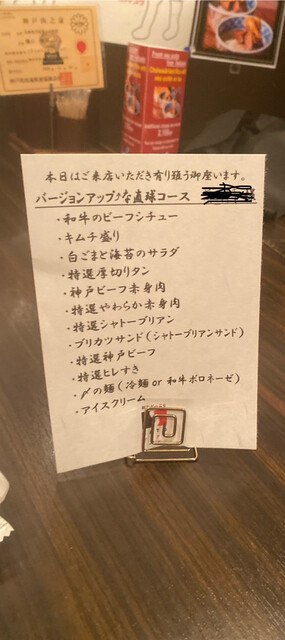 神戸肉之証
本日はご来店いただき有り難う御座います。
バージョンアップ⤴な直球コース
・和牛のビーフシチュー
・キムチ盛り
・白ごまと海苔のサラダ
・特選厚切りタン
・神戸ビーフ赤身肉
・特選やわらか赤身肉
・特選シャトーブリアン
・ブリカツサンド(シャトーブリアンサンド)
・特選神戸ビーフ
・特選ヒレすき
・〆の麺(冷麺or和牛ボロネーゼ)
・アイスクリーム